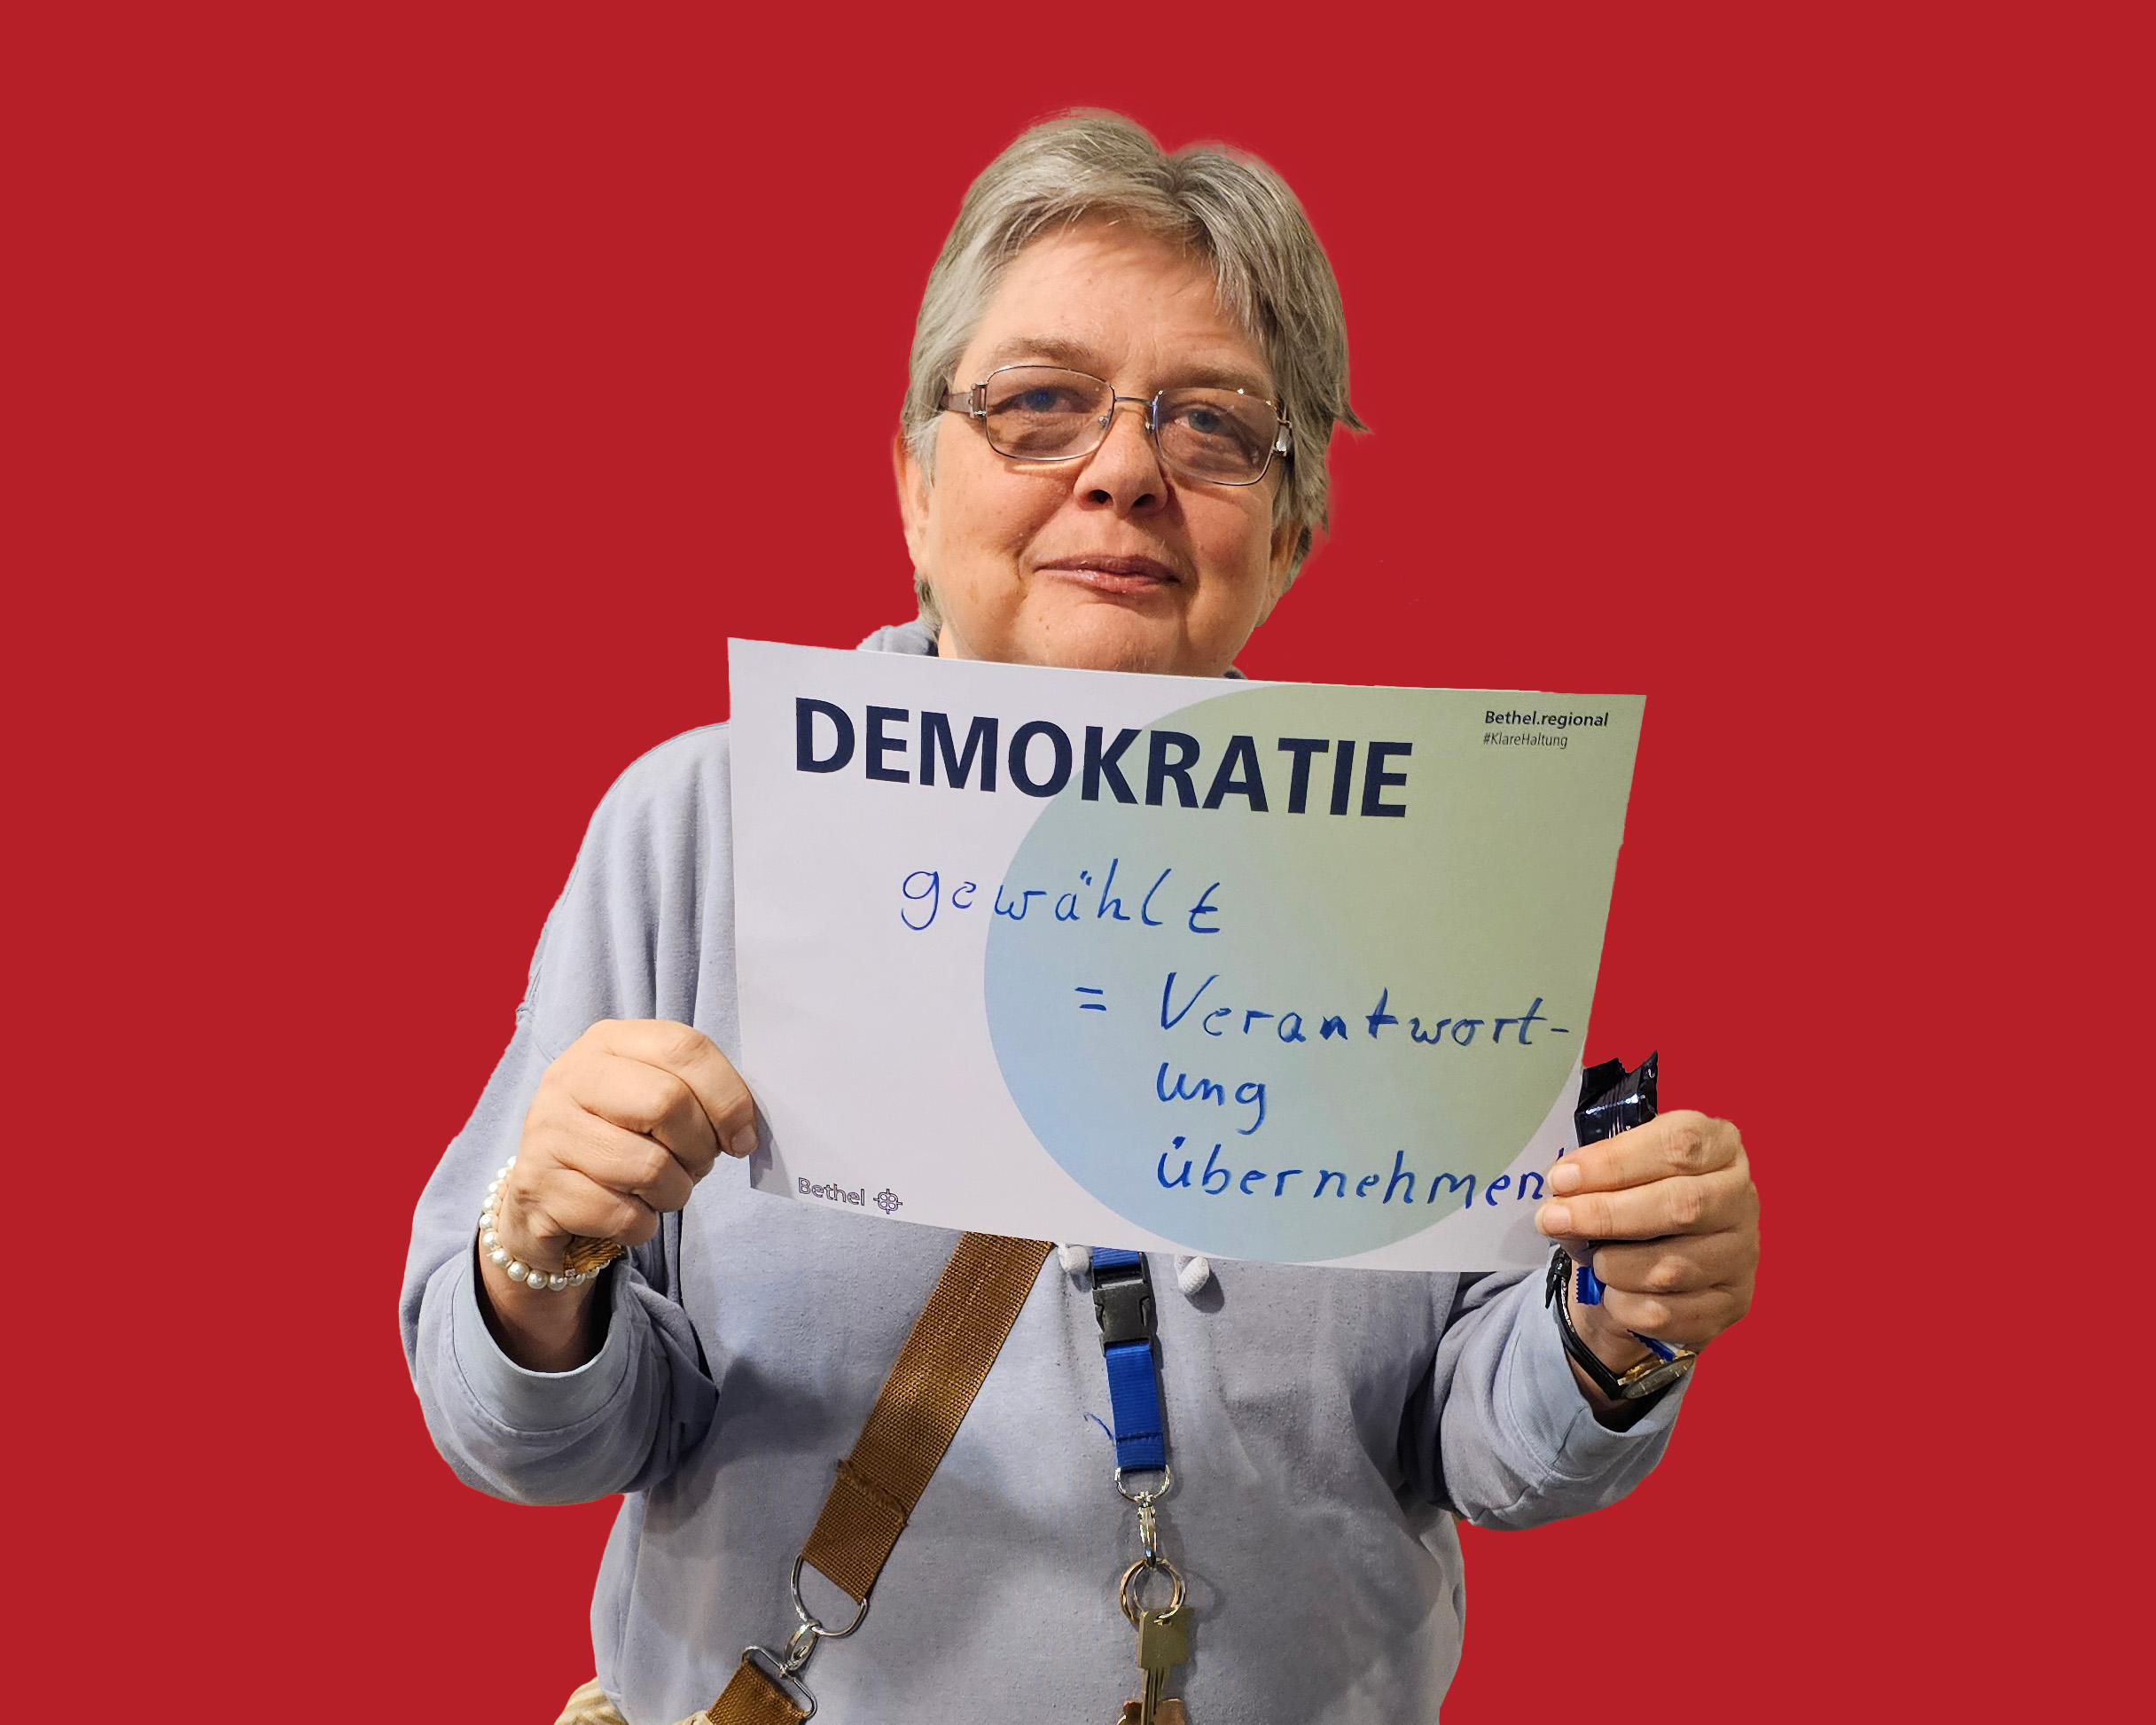 DEMOKRATIE
Bethel.regional
#KlareHaltung
gewählt
= Verantwort-
ung
übernehmen!
Bethel